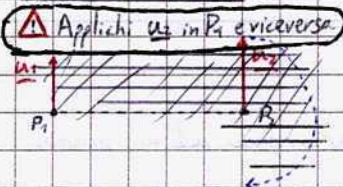 ⚠ Applichi u₂ in P₁ e viceversa
u₁ u₂
P₁ P₂